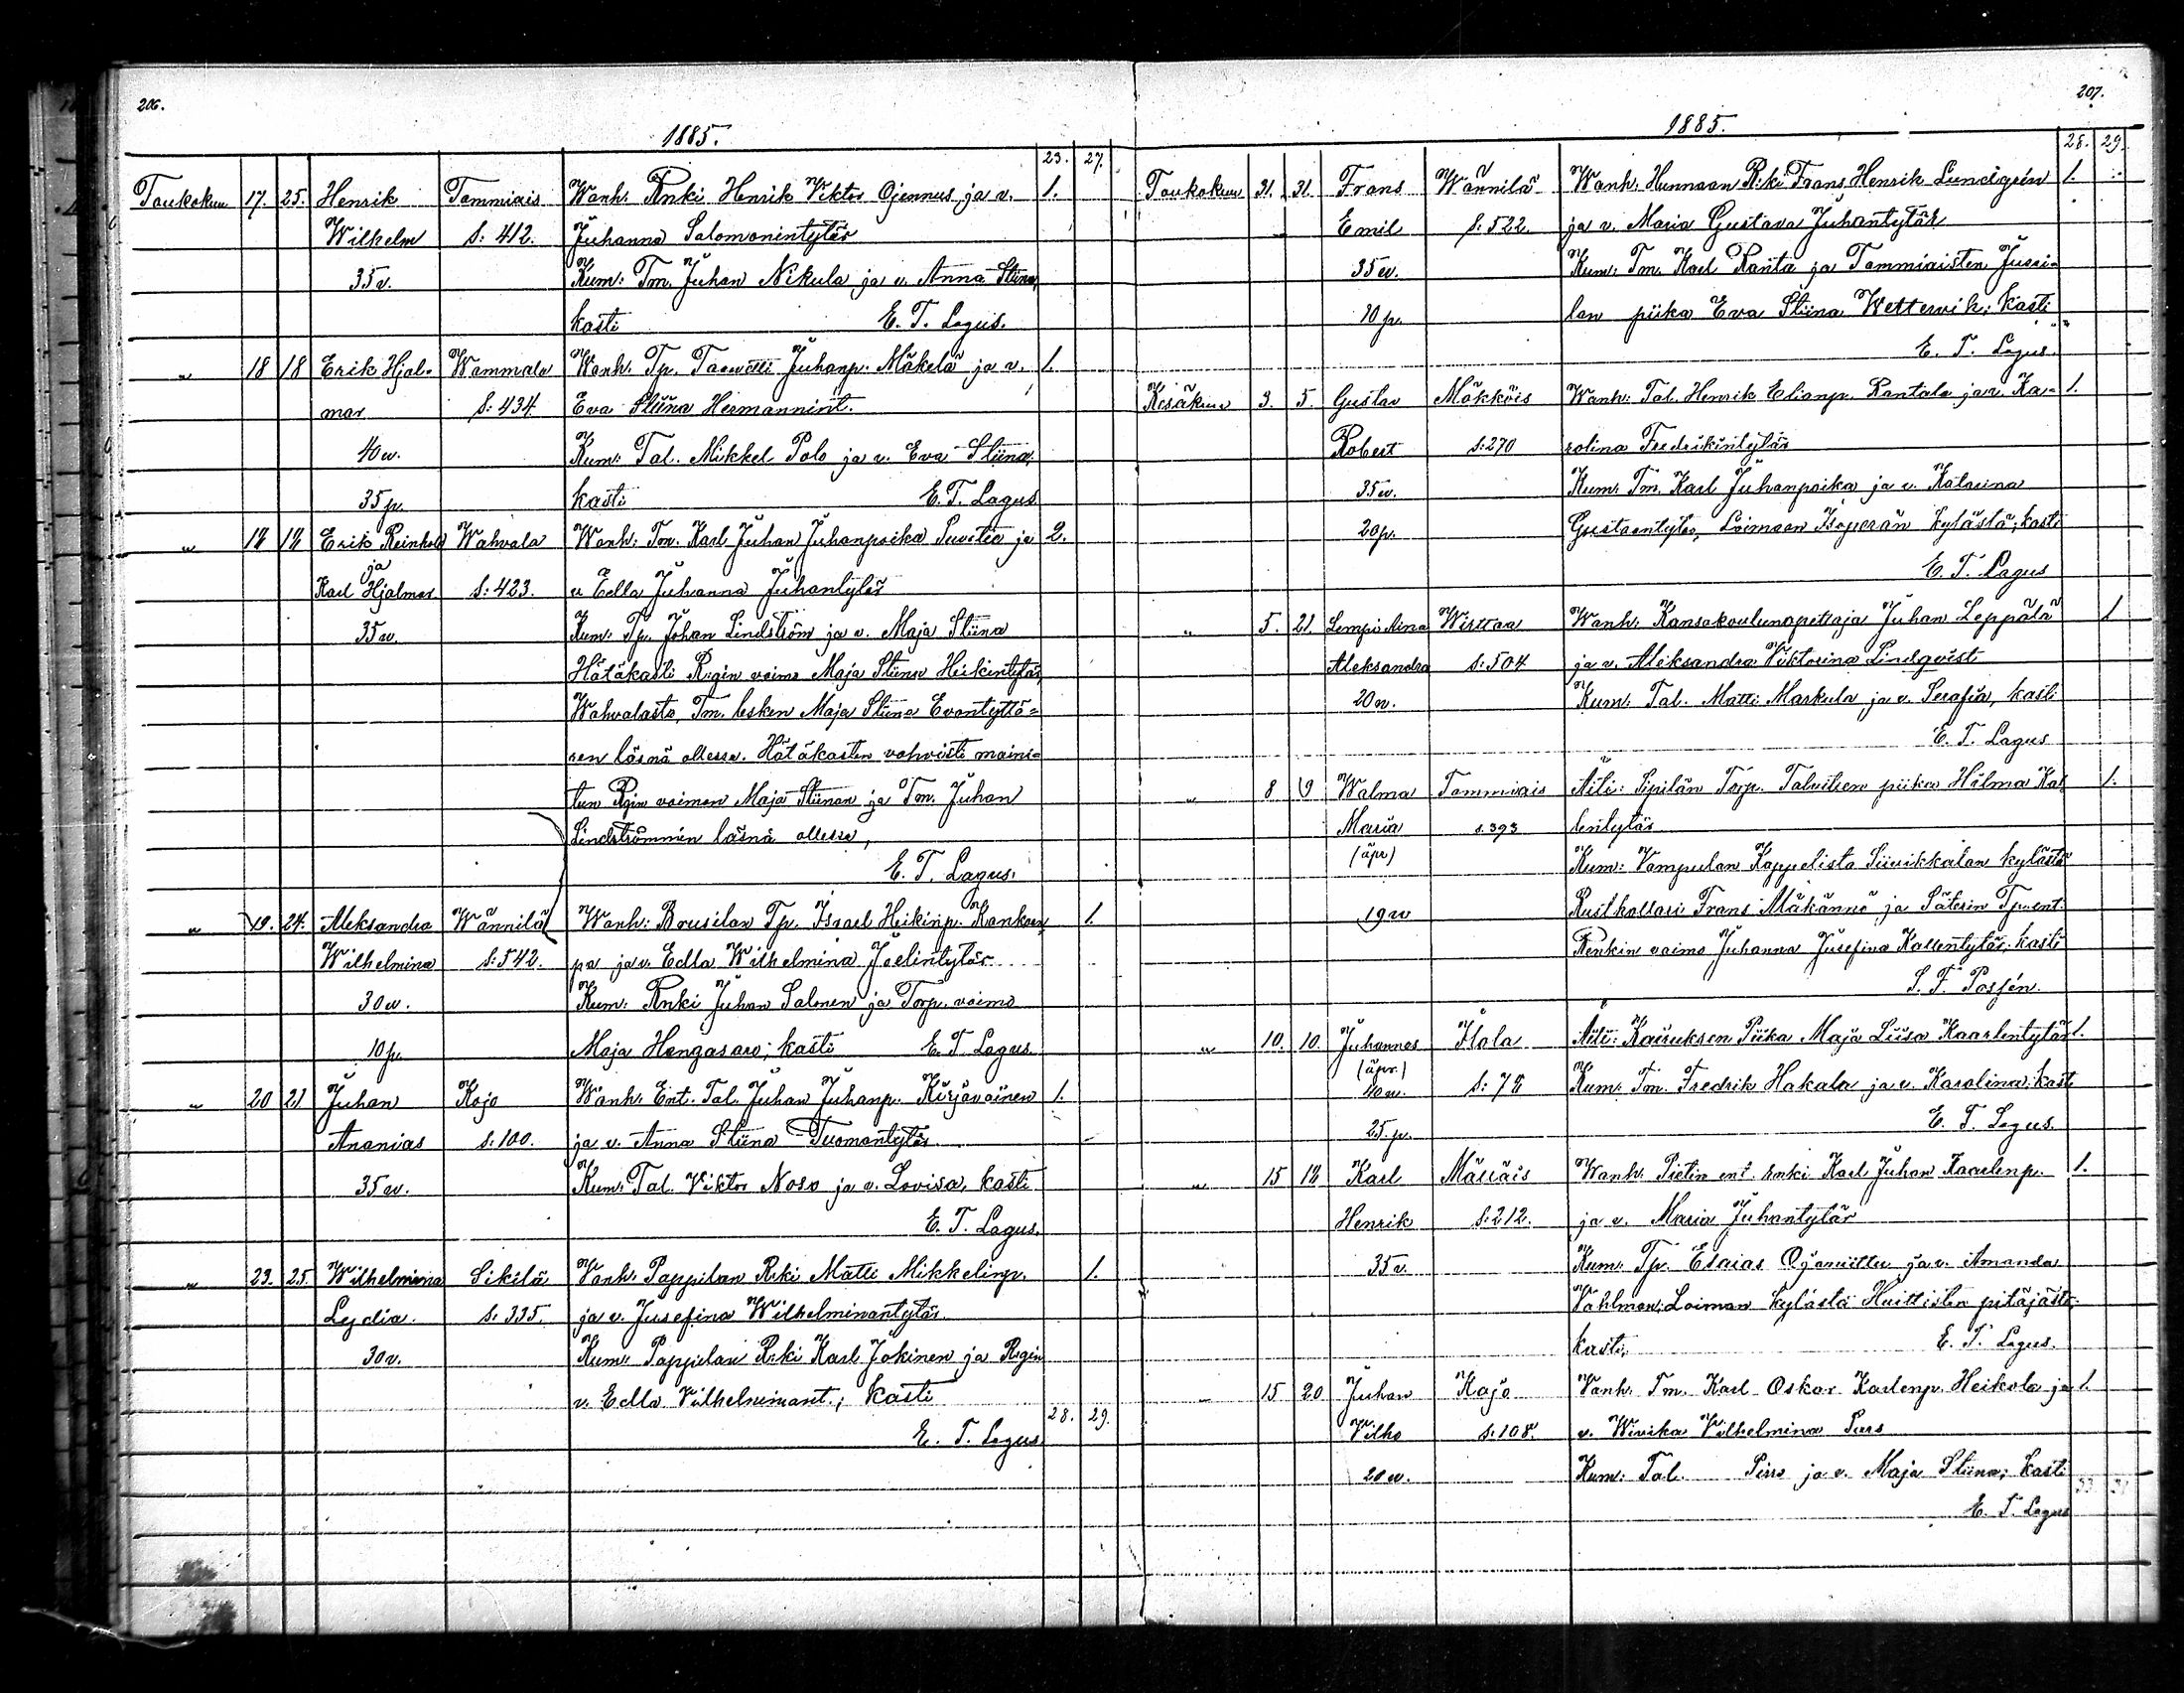 206.
1885.
23. 27.
Toukokuu 17. 25. Henrik Tammiais Wanh. Rnki Henrik Viktor Ojennus ja v. 1.
Wilhelm S: 412. Juhanna Salomonintytär
35 v. Kum: Tm. Juhan Nikula ja v. Anna Stiina,
kasti E. T. Lagus.
" 18 18 Erik Hjal- Wammala Wanh. Tp. Taavetti Juhanp. Mäkelä ja v. 1.
mar S: 434 Eva Stiina Hermannint.
40 v. Kum: Tal. Mikkel Polo ja v. Eva Stiina,
35 p. kasti E. T. Lagus
" 18 18 Erik Reinhold Wahvala Wanh. Tm. Karl Juhan Juhanpoika ja 2.
ja
Karl Hjalmar S: 423. v. Edla Juhanna Juhantytär
35 v. Kum: Tp. Johan Lindström ja v. Maja Stiina
Hätäkasti R:gin vaimo Maja Stiina Heikintytär,
Wahvalasta, Tm. lesken Maja Stiina Evantyttä-
ren läsnä ollessa. Hätäkasten vahvisti maini-
tun Rgin vaimon Maja Stiinan ja Tm. Juhan
Lindströmmin läsnä ollessa,
E. T. Lagus.
" 19. 24. Aleksandra Wännilä Wanh: Brusilan Tp. Israel Heikinp. Kankaan 1.
Wilhelmina S: 542. pä ja v. Edla Wilhelmina Joelintytär
30 v. Kum: Rnki Juhan Salonen ja Torp. vaimo
10 p. Maja Hengasaro; kasti E. T. Lagus.
" 20 21 Juhan Kojo Wanh: Ent. Tal. Juhan Juhanp. Kirjavainen 1.
Ananias S: 100. ja v. Anna Stiina Tuomantytär
35 v. Kum: Tal. Viktor Noso ja v. Lovisa, kasti
E. T. Lagus.
" 23. 25. Wilhelmina Sikilä Vanh. Pappilan R:ki Matti Mikkelinp. 1.
Lydia. S. 335. ja v. Jusefina Wilhelminantytär.
30 v. Kum: Pappilan R:ki Karl Jokinen ja R:gin
v. Edla Vilhelminant.; kasti
28. 29.
E. T. Lagus.
207.
1885.
28. 29.
Toukokuu 31. 31. Frans Wännilä Wanh: Hunnaan R:ki Frans Henrik Lundgrén 1.
Emil S: 522. ja v. Maria Gustava Juhantytär
35 v. Kum: Tm. Karl Ranta ja Tammiaisten Jussi-
10 p. lan piika Eva Stiina Wettervik; kasti
E. T. Lagus.
Kesäkuu 3. 5. Gustav Mäkköis Wanh: Tal. Henrik Elianp. Rantala ja v. Ka- 1.
Robert S: 270 rolina Fredrikintytär
35 v. Kum: Tm. Karl Juhanpoika ja v. Katarina
20 p. Gustaantytär, Loimaan Isoperän kylästä; kasti
E. T. Lagus
" 5. 21. Lempi Aina Wirttaa Wanh: Kansakoulunopettaja Juhan Leppälä 1
Aleksandra S: 504 ja v. Aleksandra Viktorina Lindqvist
20 v. Kum: Tal. Matti Markula ja v. Serafia, kasti
E. T. Lagus
" 8 9 Walma Tammiais Äiti: Sipilän Torp. Talvitsen piika Hilma Kal 1.
Maria s. 393 lentytär
(äpr) Kum: Vampulan Kappelista Siivikkalan kylästä
19 v Rustkollari Frans Mäkännö ja Säterin Tp. ent.
Renkin vaimo Juhanna Jusefina Kallentytär; kasti
S. F. Posfén.
" 10. 10. Juhannes Ilola Äiti: Kairuksen Piika Maja Liisa Kaarlentytär 1.
(äpr.)
40 v. S: 78 Kum: Tm. Fredrik Hakala ja v. Karolina; kast
25. p. E. T. Lagus.
" 15 18 Karl Mälläis Wanh. Pietin ent. renki Karl Juhan Kaarlenp. 1.
Henrik S: 212. ja v. Maria Juhantytär
35 v. Kum: Tp. Esaias Ojaniittu ja v. Amanda
Vahlman; Loiman kylästä Huittisten pitäjästä.
kasti, E. T. Lagus.
" 15 20 Juhan Kojo Vanh. Tm. Karl Oskar Karlenp. Heikola ja 1.
Vilho S: 108. v. Wivika Vilhelmina
20 v. Kum: Tal. Pirro ja v. Maja Stiina; kasti
E. T. Lagus